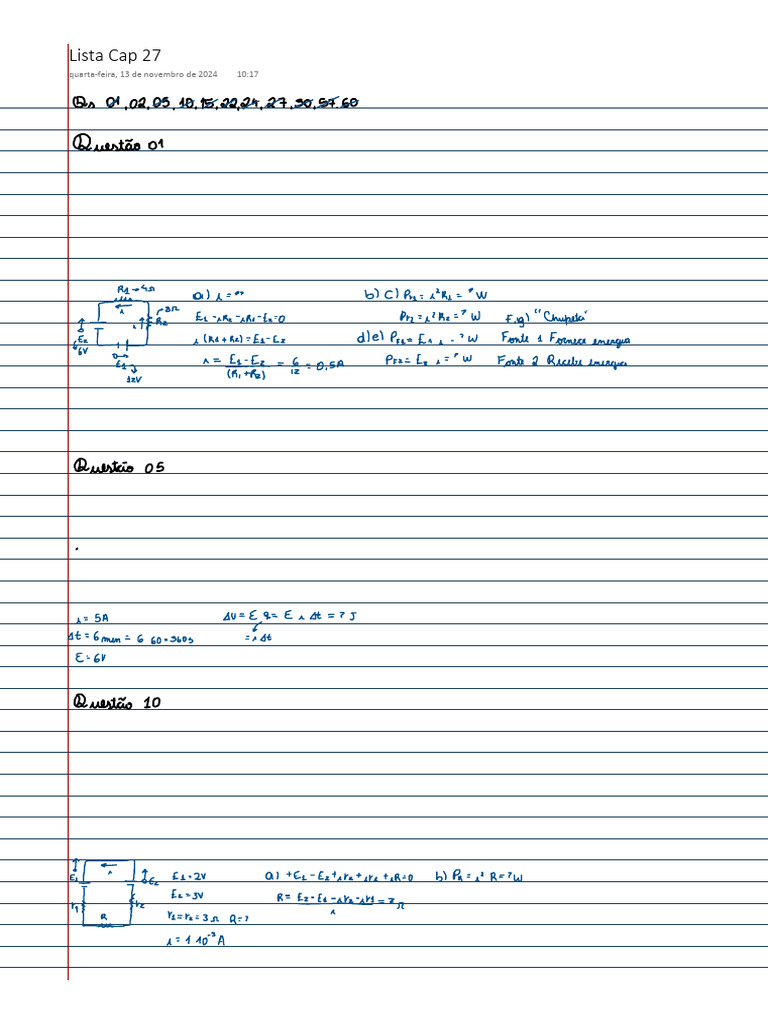 Lista Cap 27
quarta-feira, 13 de novembro de 2024 10:17
Qs 01, 02, 05, 10, 15, 22, 24, 27, 30, 57, 60
Questão 01
R1 → 4Ω
8Ω
R2
i
i
E2
6V
E1
12V
a) i = ??
E1 - iR2 - iR1 - E2 = 0
i (R1 + R2) = E1 - E2
i = E1 - E2 / (R1 + R2) = 6 / 12 = 0,5A
b) c) PR1 = i² R1 = ? W
PR2 = i² R2 = ? W
d) e) PF1 = E1 i = ? W
PF2 = E2 i = ? W
F. g) "Chupeta"
Fonte 1 Fornece energia
Fonte 2 Recebe energia
Questão 05
i = 5A
Δt = 6 min = 6 60 = 360s
E = 6V
ΔU = E q = E i Δt = ? J
= i Δt
Questão 10
E1
i
E2
r1
r2
R
E1 = 2V
E2 = 3V
r1 = r2 = 3Ω R = ?
i = 1 10⁻³ A
a) +E1 - E2 + ir2 + ir1 + iR = 0
R = E2 - E1 - ir2 - ir1 / i = ? Ω
b) PR = i² R = ? W